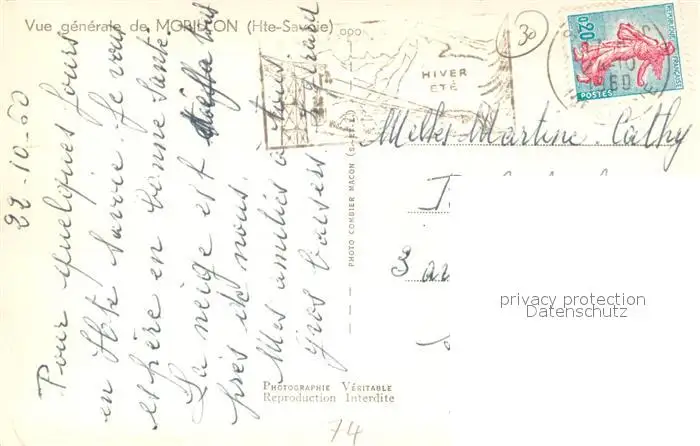 Vue générale de MORILLON (Hte-Savoie)
22-10-60
Pour quelques jours
en Hte Savoie. Je vous
espère en bonne santé
La neige est tous
près de nous.
Mes amitiés à tous.
Gros baisers Gérard
HIVER
ÉTÉ
30
0,20
REPUBLIQUE FRANÇAISE
POSTES
10
60
PHOTO COMBIER MACON (S.-et-L.)
Melles Martine. Cathy
privacy protection
Datenschutz
PHOTOGRAPHIE VÉRITABLE
Reproduction Interdite
74